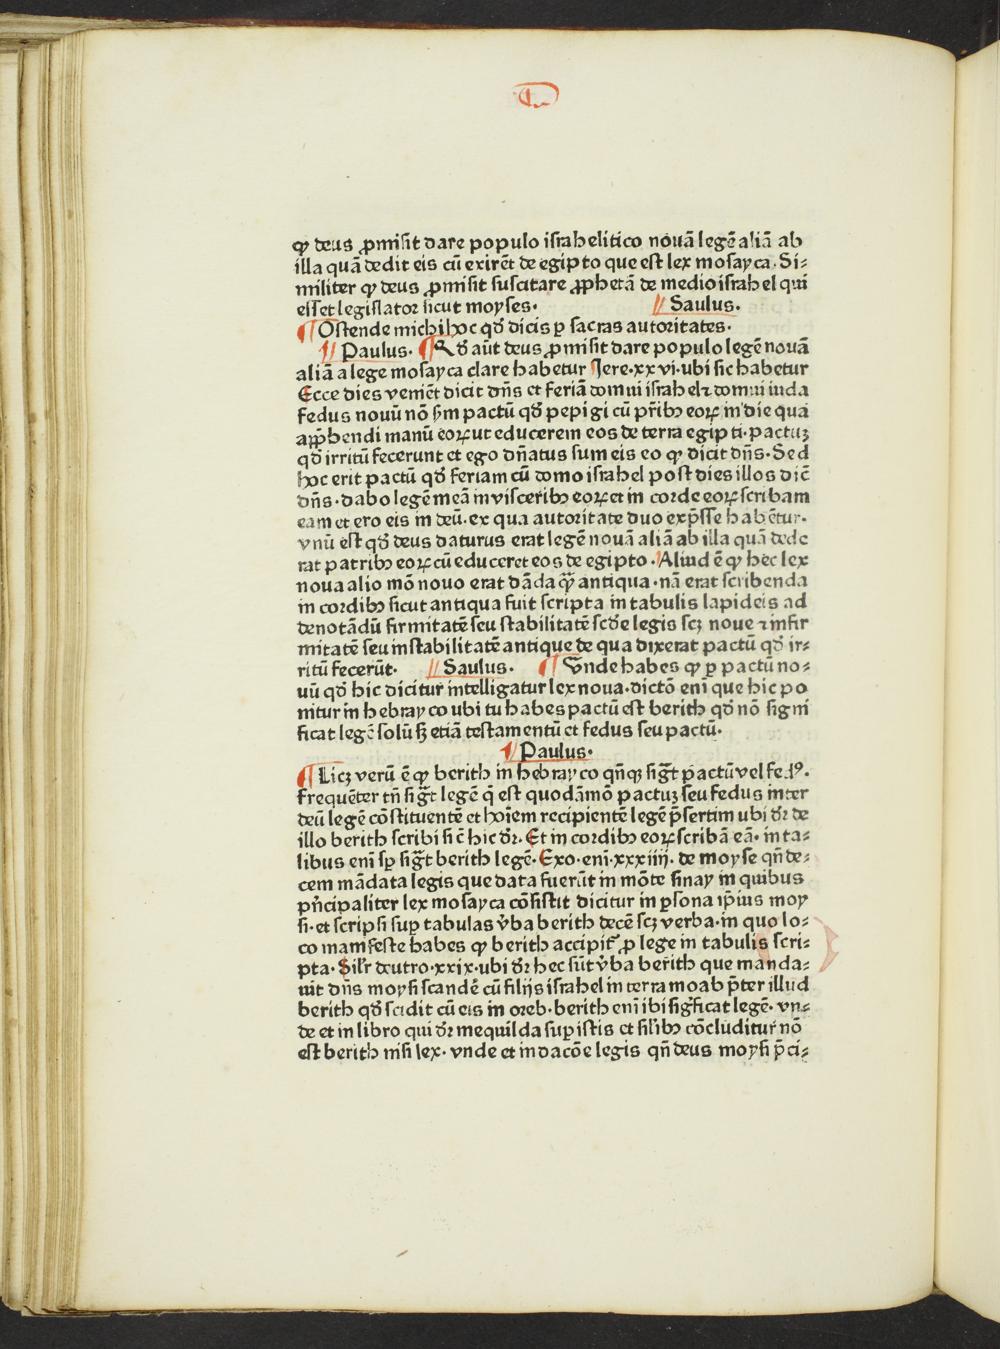 ꝙ deus ꝓmisit dare populo israhelitico nouā legē aliā ab
illa quā dedit eis cū exirēt de egipto que est lex mosayca. Si⸗
militer ꝙ deus ꝓmisit suscitare ꝓphetā de medio israhel qui
esset legislator sicut moyses. Saulus.
¶ Ostende michi hoc qđ dicis ꝑ sacras autoritates.
Paulus. ¶ Qđ aūt deus ꝓmisit dare populo legē nouā
aliā a lege mosayca clare habetur Jere.xxvi.ubi sic habetur
Ecce dies veniēt dicit dn̄s et feriā domui israhel ⁊ domui iuda
fedus nouū nō sm̄ pactū qđ pepigi cū pr̄ibꝫ eoꝝ in die qua
app̄hendi manū eoꝝ ut educerem eos de terra egipti.pactuꝫ
qđ irritū fecerunt et ego dn̄atus sum eis eo ꝙ dicit dn̄s. Sed
hoc erit pactū qđ feriam cū domo israhel post dies illos dic̄
dn̄s.dabo legē meā in visceribꝫ eoꝝ et in corde eoꝝ scribam
eam et ero eis in deū.ex qua autoritate duo exp̄sse habētur.
vnū est qđ deus daturus erat legē nouā aliā ab illa quā dede
rat patribꝫ eoꝝ cū educeret eos de egipto. Aliud ē ꝙ hec lex
noua alio mō nouo erat dāda q̄ꝫ antiqua.nā erat scribenda
in cordibꝫ sicut antiqua fuit scripta in tabulis lapideis ad
denotādū firmitatē seu stabilitatē scđe legis scꝫ noue ⁊ infir
mitatē seu instabilitatē antique de qua dixerat pactū qđ ir⸗
ritū fecerūt. Saulus. ¶ Vnde habes ꝙ ꝑ pactū no⸗
uū qđ hic dicitur intelligatur lex noua.dictō enī que hic po
nitur in hebrayco ubi tu habes pactū est berith qđ nō signi
ficat legē solū sꝫ etiā testamentū et fedus seu pactū.
Paulus.
¶ Licꝫ verū ē ꝙ berith in hebrayco qn̄qꝫ sigt̄ pactū vel fe.dꝰ.
frequēter tn̄ sigt̄ legē q̄ est quodāmō pactuꝫ seu fedus inter
deū legē cōstituentē et hoīem recipientē legē p̄sertim ubi dr̄ de
illo berith scribi sic̄ hic dr̄. Et in cordibꝫ eoꝝ scribā eā. in ta⸗
libus enī sꝑ sigt̄ berith legē. Exo.enī.xxxiiij. de moyse qn̄ de⸗
cem mādata legis que data fuerūt in mōte sinay in quibus
pn̄cipaliter lex mosayca cōsistit dicitur in ꝑsona ip̄ius moy
si.et scripsi suꝑ tabulas v̄ba berith decē scꝫ verba.in quo lo⸗
co manifeste habes ꝙ berith accipit᷑ ꝓ lege in tabulis scri⸗
pta. Sil̄r deutro.xxix.ubi dr̄ hec sūt v̄ba berith que manda⸗
uit dn̄s moysi scandē cū filijs israhel in terra moab p̄ter illud
berith qđ scidit cū eis in oreb.berith enī ibi sig̅ficat legē. vn⸗
de et in libro qui dr̄ mequilda suꝑ istis et sil̄ibꝫ cōcluditur nō
est berith nisi lex. vnde et in dacōe legis qn̄ deus moysi p̄ci⸗